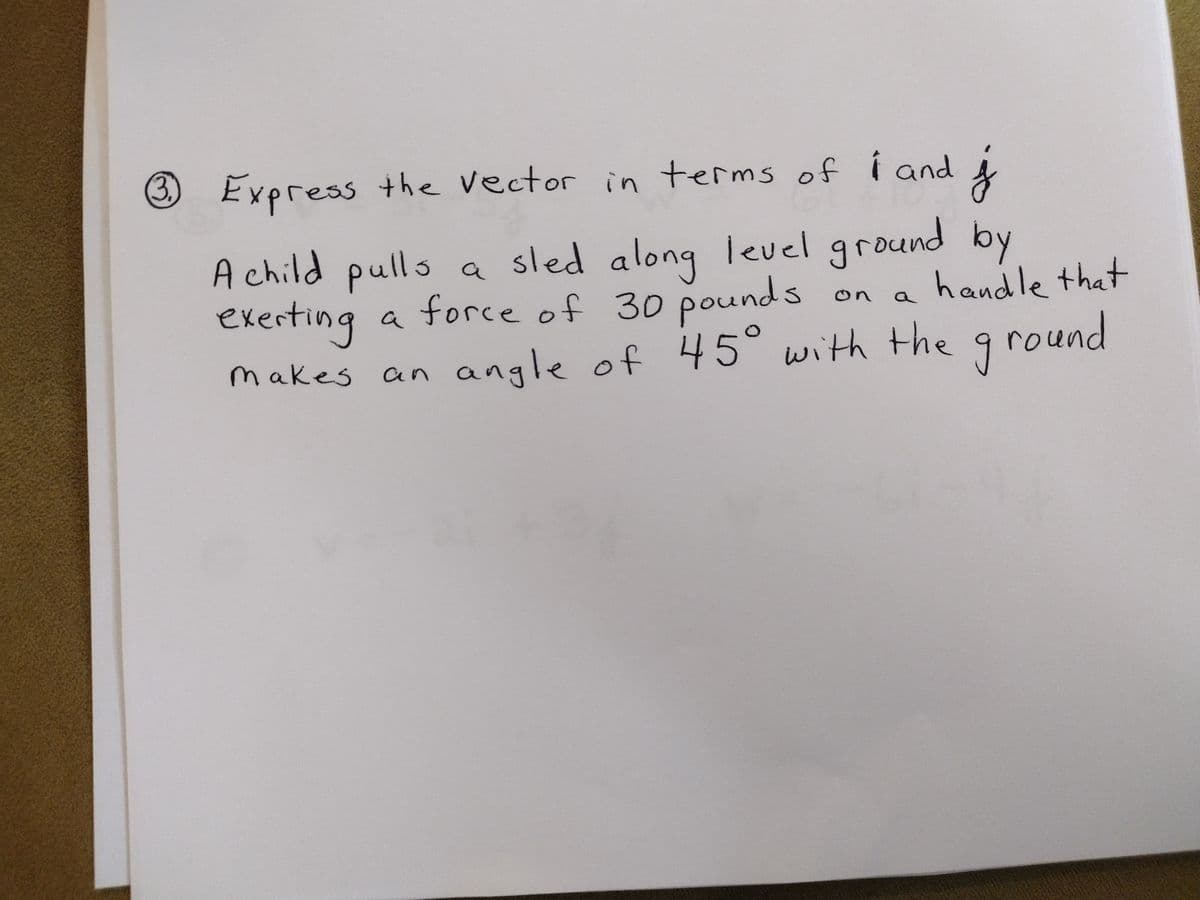 3. Express the vector in terms of i and j
A child pulls a sled along level ground by
exerting a force of 30 pounds on a handle that
makes an angle of 45° with the ground